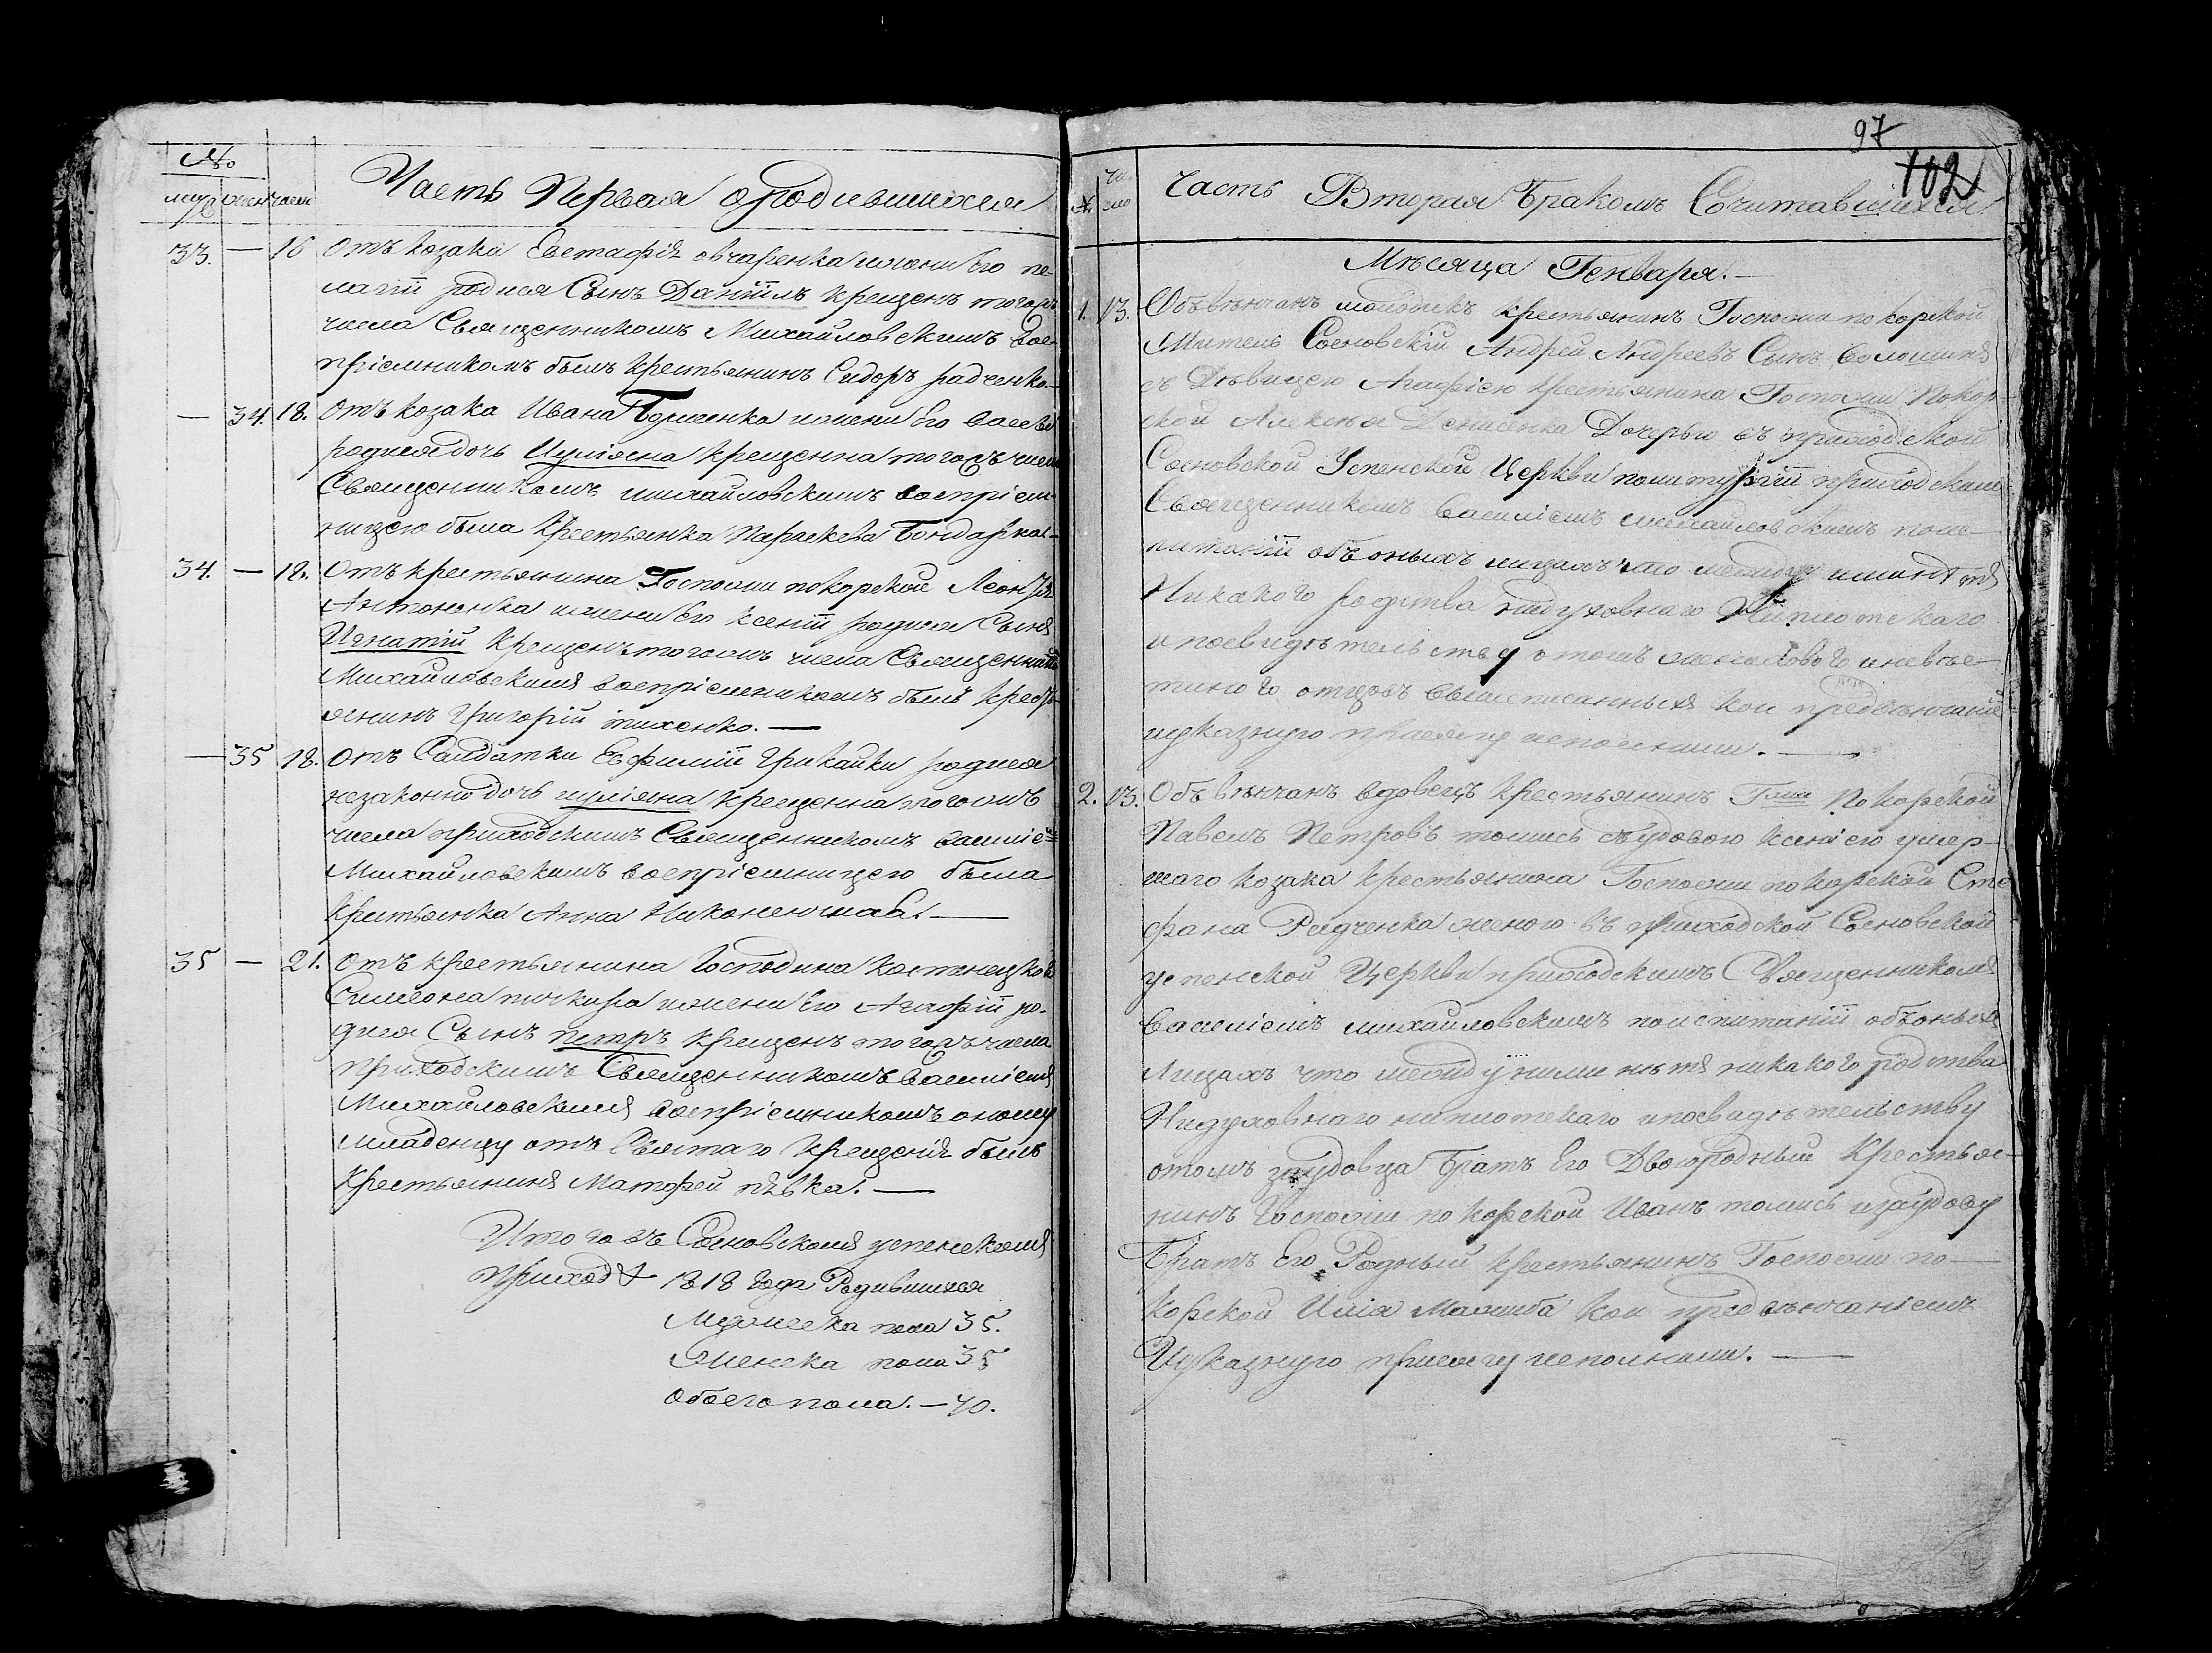 №
муж женс число
Часть Первая о родившихся
33. — 16 отъ козака Евстафія овчаренка и жени Его пе-
лагіи родился Сынъ Даніилъ крещенъ того жъ
числа Священникомъ Михайловскимъ вос-
пріемникомъ былъ крестьянинъ Сидоръ радченко.
— 34. 18. отъ козака Ивана и жени Его
родися дочь Иуліяна крещенна того жъ числа
Священникомъ михайловскимъ воспріем-
ницею была крестьянка Параскева Бондарка. —
34. — 18. отъ крестьянина Госпожи покорской Леонтія
Антоненка и жени Его ксеніи родися Сынъ
Игнатій крещенъ того жъ числа Священникомъ
Михайловскимъ воспріемникомъ былъ кресть-
янинъ Григорій тихенко. —
— 35 18. отъ Салдатки Евфиміи родися
незаконно дочь иуліяна крещенна того жъ
числа приходскимъ Священникомъ василіе=
Михайловскимъ воспріемницею была
крестьянка Анна —
35 — 21. отъ крестьянина Господина костенецкого
Симеона и жени Его Агафіи ро-
дися Сынъ петръ крещенъ того жъ числа
приходскимъ Священникомъ Василіемъ
Михайловскимъ воспріемникомъ оному
младенцу отъ Святаго крещенія былъ
крестьянинъ Матфей —
Итого въ Сосновскомъ успенскомъ
приходѣ 1818 года Родившихся
Мужеска пола 35.
Женска пола 35
обоего пола. — 70.
97
102
№ число
часть Вторая Бракомъ Сочитавшихся
Мѣсяца Генваря. —
1. 13. Обвѣнчанъ молодикъ крестьянинъ Госпожи покорской
Житель Сосновскій Андрей Андреевъ Сынъ
съ Дѣвицею Агафіею крестьянина Госпожи Покор-
ской Алексѣя Денисенка Дочерью въ приходской
Сосновской Успенской Церкви по литургіи приходскимъ
Священникомъ Василіемъ михайловскимъ по ис-
питаніи объ оныхъ лицахъ что между ими нѣтъ
Никакого родства ни духовнаго Ни плотскаго
и по свидѣтельству о томъ женихового и невѣс-
тиного отцовъ вышеписанныхъ кои предъ вѣнчаніе
указную присягу исполнили. —
2. 13. Обвѣнчанъ вдовецъ крестьянинъ Г-жи Покорской
Павелъ Петровъ съ удовою ксеніею умер-
шаго козака крестьянина Госпожи покорской Сте
фана Радченка женою въ приходской Сосновской
успенской Церкви приходскимъ Священникомъ
Василіемъ михайловскимъ по испитаніи объ оныхъ
Лицахъ что между ними нѣтъ никакого родства
Ни духовнаго ни плотскаго и по свидѣтельству
о томъ за удовца Братъ Его Двоюродный крестья-
нинъ Госпожи покорской Иванъ за удову
Братъ Его Родный крестьянинъ Госпожи по-
корской Илія кои предъ вѣнчаніемъ
Указную присягу исполнили. —